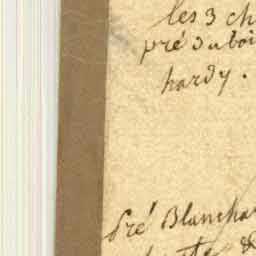 les 3 ch
pré du boi
hardy.
pré Blancha